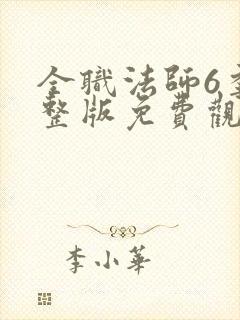 全職法師6季
整版免費觀
李小華